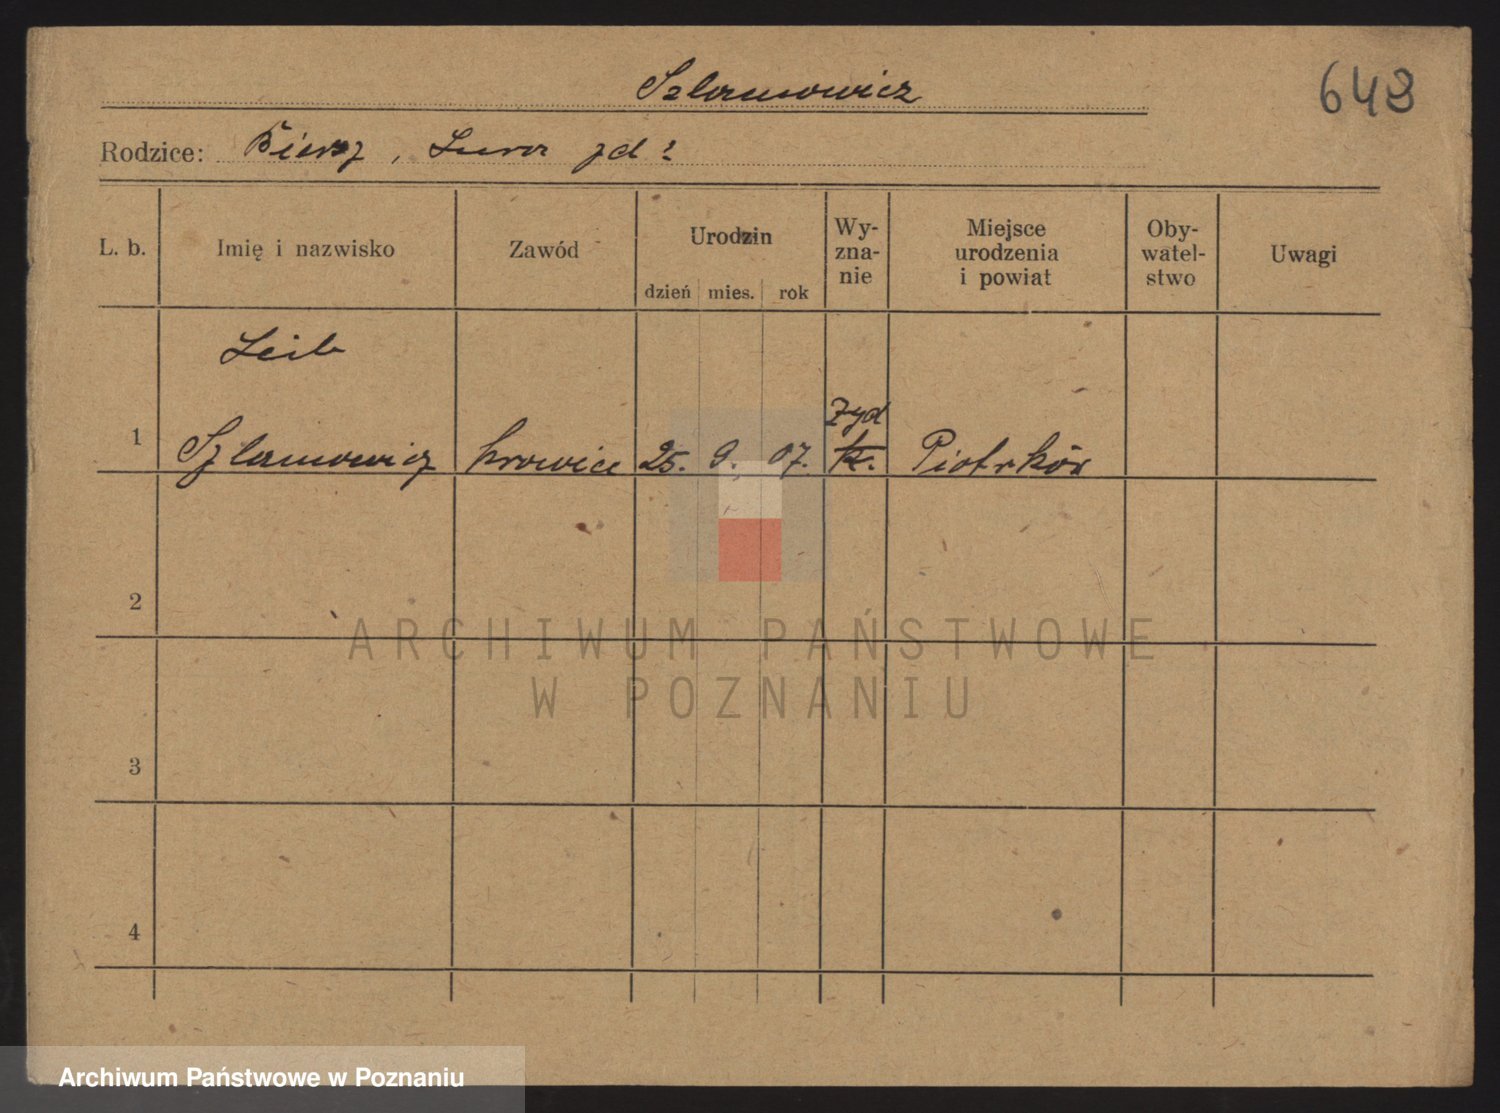 Szlamowicz
648
Rodzice:
L. b. Imię i nazwisko Zawód Urodzin dzień mies. rok Wy-zna-nie Miejsce urodzenia i powiat Oby-watel-stwo Uwagi
Leib
żyd
1 Szlamowicz krawiec 25. 9. 07. k. Piotrków
2
3
4
ARCHIWUM PAŃSTWOWE
W POZNANIU
Archiwum Państwowe w Poznaniu